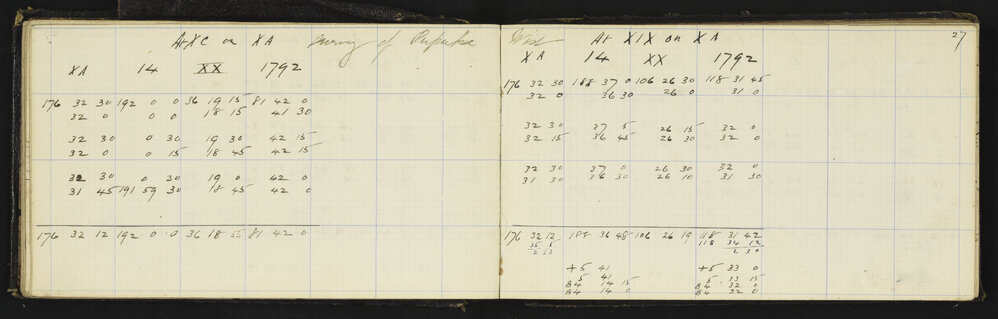 At XC on XA Survey of Pupuke
XA 14 XX 1792
176 32 30 192 0 0 36 19 15 81 42 0
32 0 0 0 18 15 41 30
32 30 0 30 19 30 42 15
32 0 0 15 18 45 42 15
32 30 0 30 19 0 42 0
31 45 191 59 30 18 45 42 0
176 32 12 192 0 0 36 18 55 81 42 0
27
At XIX on XA
XA 14 XX 1792
176 32 30 188 37 0 106 26 30 118 31 45
32 0 36 30 26 0 31 0
32 30 37 5 26 15 32 0
32 15 36 45 26 30 32 0
32 30 37 0 26 30 32 0
31 30 36 30 26 10 31 30
176 32 12 188 36 48 106 26 19 118 31 42
35 5 118 34 12
2 53 2 30
+5 41 +5 33 0
5 41 5 33 15
84 14 15 84 32 0
84 14 0 84 32 0